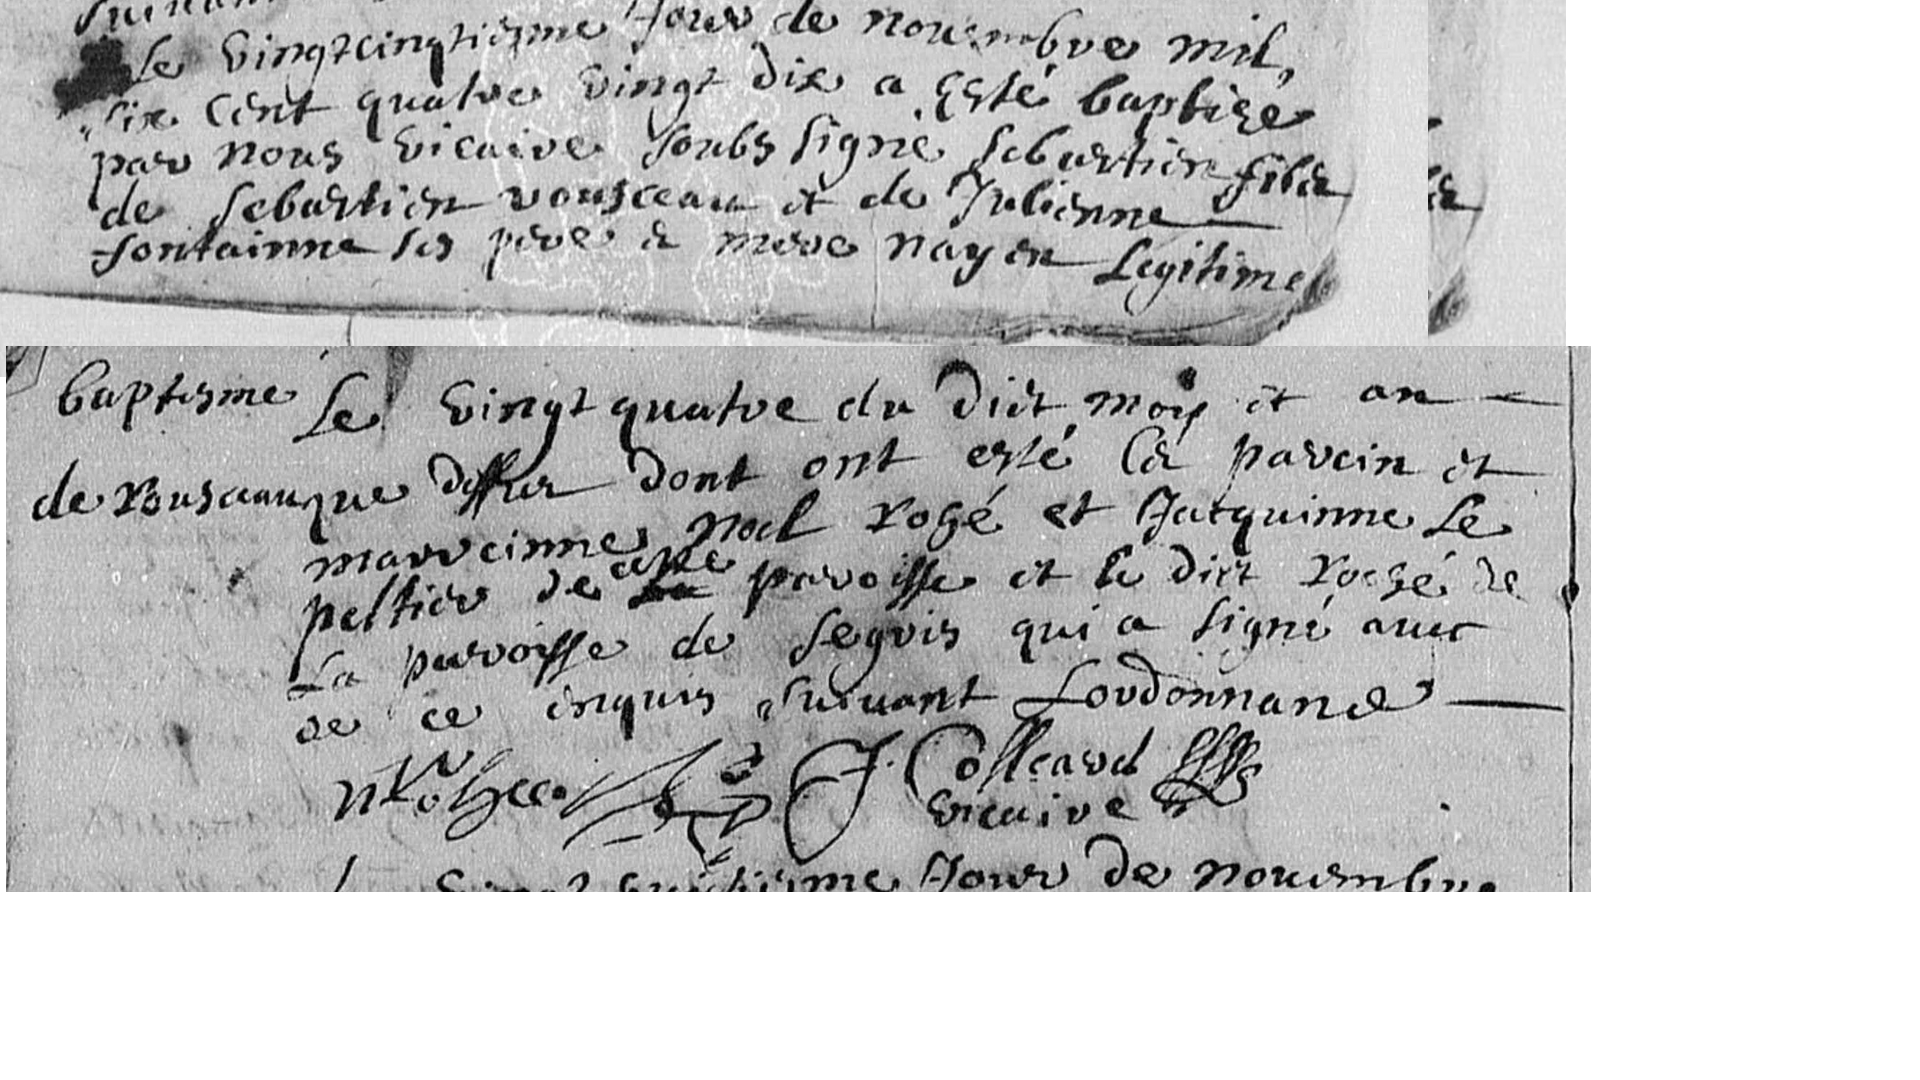 Le vingtcinqtiesme Jour de nouembre mil
six cent quatre vingt dix a esté baptizé
par nous vicaire soubs signé Sebastien filsz
de Sebastien rousceau et de Julienne
fontainne ses pere & mere nay en Legitime
baptesme Le vingt quatre du dict mois et an
de Rousceau que dessus dont ont esté les parein et
marreinne noel rogé et Jacquinne Le
peltier de ceste paroisse et le dict rogé de
La paroisse de segrie qui a signé auec
de ce enquis suivant Lordonnance
n Roger J Colleard
vicaire
Le vingt huictiesme Jour de nouembre